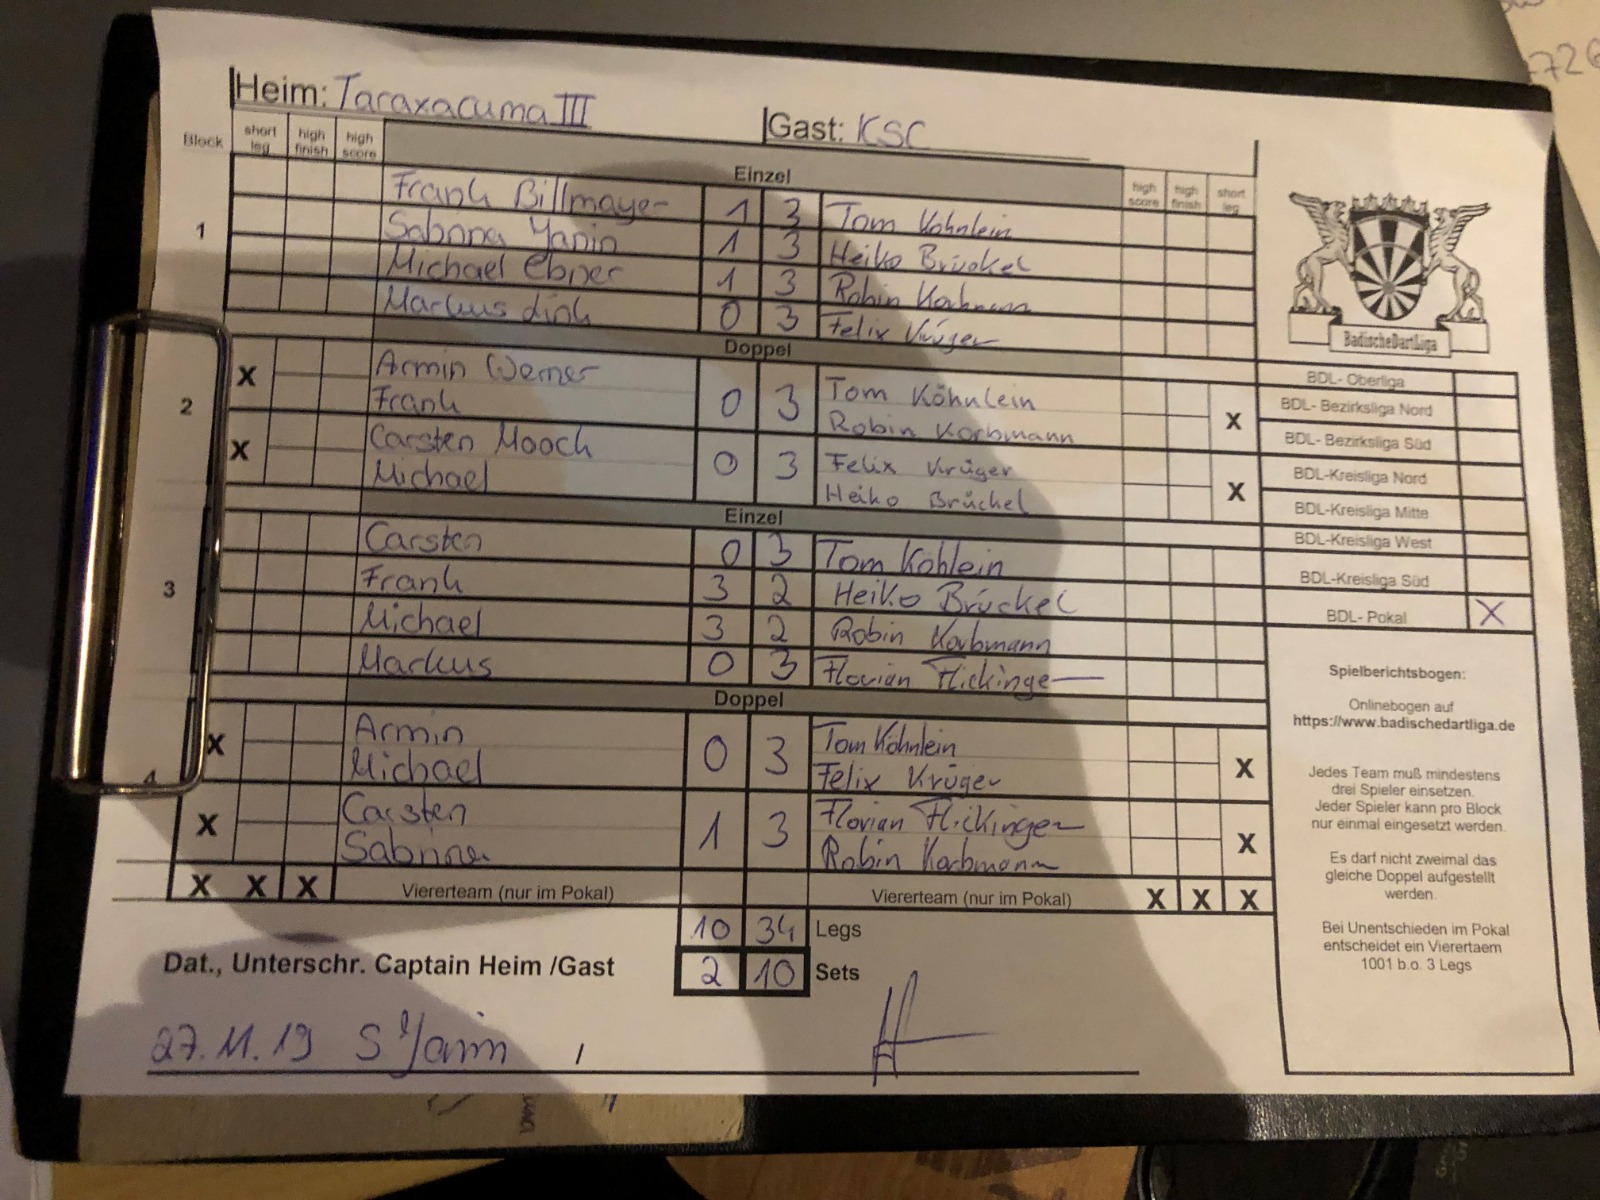 Heim: Taraxacuma III
Gast: KSC
Block short leg high finish high score
Einzel
high score high finish short leg
1
Frank Billmayer 1 3 Tom Köhnlein
Sabrina Yanin 1 3 Heiko Brückel
Michael Ebner 1 3 Robin Korbmann
Markus Link 0 3 Felix Krüger
Doppel
2
X Armin Werner 0 3 Tom Köhnlein X
Frank Robin Korbmann
X Carsten Mooch 0 3 Felix Krüger X
Michael Heiko Brückel
Einzel
3
Carsten 0 3 Tom Köhlein
Frank 3 2 Heiko Brückel
Michael 3 2 Robin Korbmann
Markus 0 3 Florian Flickinger
Doppel
4
X Armin 0 3 Tom Köhnlein X
Michael Felix Krüger
X Carsten 1 3 Florian Flickinger X
Sabrina Robin Korbmann
X X X Viererteam (nur im Pokal) Viererteam (nur im Pokal) X X X
10 34 Legs
Dat., Unterschr. Captain Heim /Gast 2 10 Sets
27.11.19 S Yanin /
BadischeDartLiga
BDL- Oberliga
BDL- Bezirksliga Nord
BDL- Bezirksliga Süd
BDL-Kreisliga Nord
BDL-Kreisliga Mitte
BDL-Kreisliga West
BDL-Kreisliga Süd
BDL- Pokal X
Spielberichtsbogen:
Onlinebogen auf
https://www.badischedartliga.de
Jedes Team muß mindestens
drei Spieler einsetzen.
Jeder Spieler kann pro Block
nur einmal eingesetzt werden.
Es darf nicht zweimal das
gleiche Doppel aufgestellt
werden.
Bei Unentschieden im Pokal
entscheidet ein Vierertaem
1001 b.o. 3 Legs